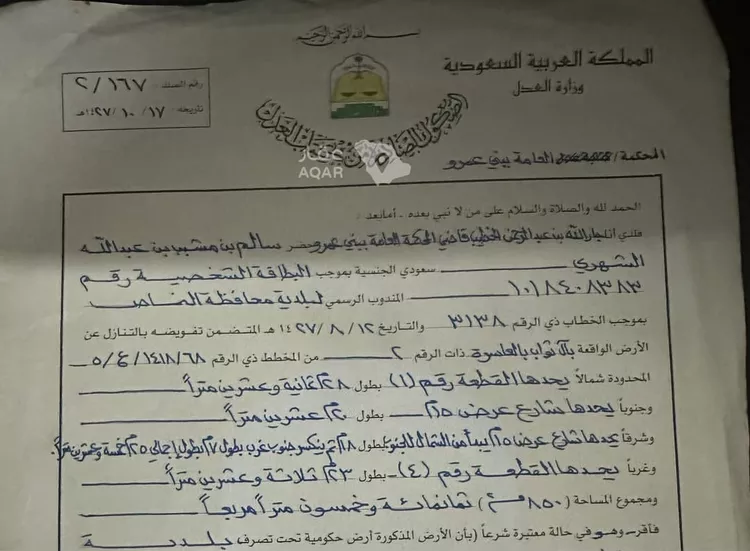 بسم الله الرحمن الرحيم
المملكة العربية السعودية
وزارة العدل
رقم الصك: ٢/١٦٧
تاريخه: ١٧/ ١٠ /١٤٢٧هـ
عقار
AQAR
المحكمة/ العامة ببني عمرو
الحمد لله والصلاة والسلام على من لا نبي بعده - أمابعد:
فلدي أنا جارالله بن عبدالرحمن الخطيب قاضي المحكمة العامة ببني عمرو حضر سالم بن مشبب بن عبدالله
الشهري سعودي الجنسية بموجب البطاقة الشخصية رقم
١٠١٨٤٠٨٣٨٣ المندوب الرسمي لبلدية محافظة النماص
بموجب الخطاب ذي الرقم ٣١٣٨ والتاريخ ١٢/ ٨ /١٤٢٧هـ المتضمن تفويضه بالتنازل عن
الأرض الواقعة ذات الرقم ٢ من المخطط ذي الرقم ١٤١٨/٦٨/ع/٥
المحدودة شمالاً يحدها القطعة رقم (١) بطول ٢٨م ثمانية وعشرين متراً
وجنوباً يحدها شارع عرض ١٥م بطول ٢٠م عشرين متراً
وشرقاً يحدها شارع عرض ١٥م يبدأ من الشمال للجنوب بطول ١٨م ثم ينكسر جنوب غرب بطول ٧م بطول إجمالي ٢٥م خمسة وعشرين متراً.
وغرباً يحدها القطعة رقم (٤) بطول ٢٣م ثلاثة وعشرين متراً
ومجموع المساحة (٨٥٠م٢) ثمانمائة وخمسون متراً مربعاً
فأقر وهو في حالة معتبرة شرعاً (بأن الأرض المذكورة أرض حكومية تحت تصرف بلدية